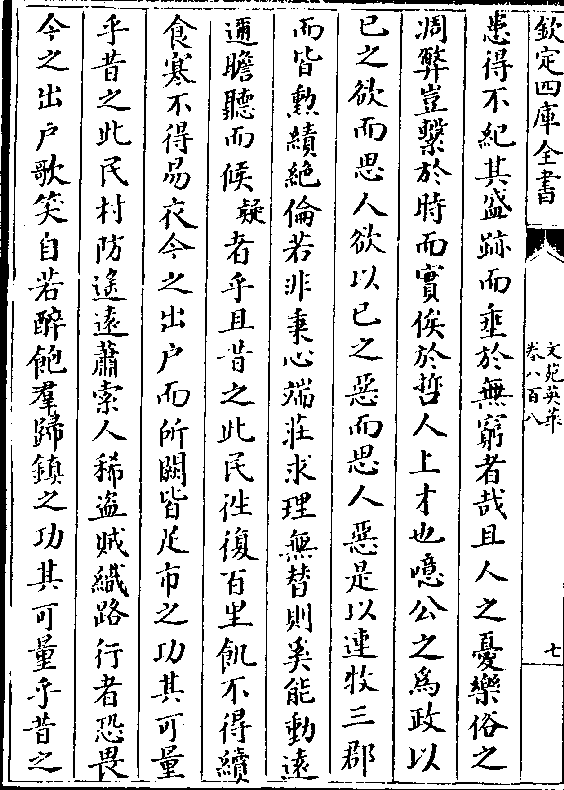 欽定四庫全書
文苑英華
卷八百八
七
患得不紀其盛跡而垂於無窮者哉且人之憂樂俗之
凋弊豈繫於時而實俟於哲人上才也噫公之為政以
已之欲而思人欲以已之惡而思人惡是以連牧三郡
而皆勲績絶倫若非秉心端莊求理無替則奚能動逺
邇瞻聽而候疑者乎且昔之此民徃復百里飢不得續
食寒不得易衣今之出户而所闕皆足市之功其可量
乎昔之此民村防遙逺蕭索人稀盗賊織路行者恐畏
今之出户歌笑自若醉飽羣歸鎮之功其可量乎昔之